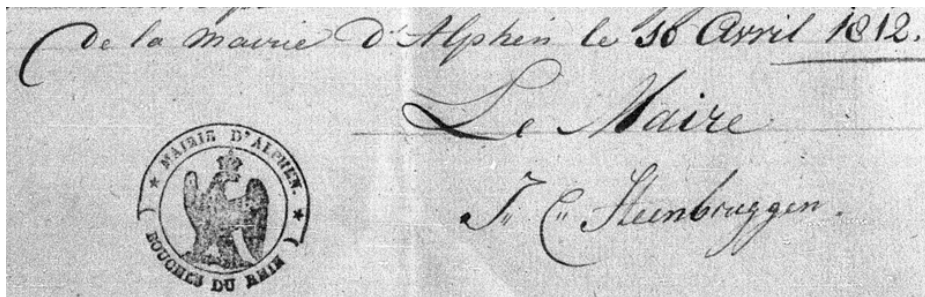 de la mairie D'Alphen le 16 Avril 1812.
Le Maire
J. C. Steenbruggen.
MAIRIE D'ALPHEN.
BOUCHES DU RHIN